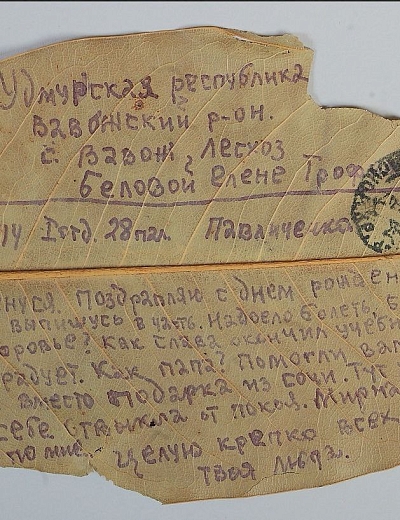 Удмурская республика
Вавожский р-он.
с. Вавож, лесхоз
Беловой Елене Троф
/14 I отд. 28 пал. Павличенко
нуся. Поздравляю с днем рожден
выпишусь в часть. Надоело болеть,
оровье? Как Слава окончил учебн
радует. Как папа? Помогли вам
вместо подарка из Сочи. Тут
себе отвыкла от покоя.
по мне. Целую крепко всех
твоя Люда.